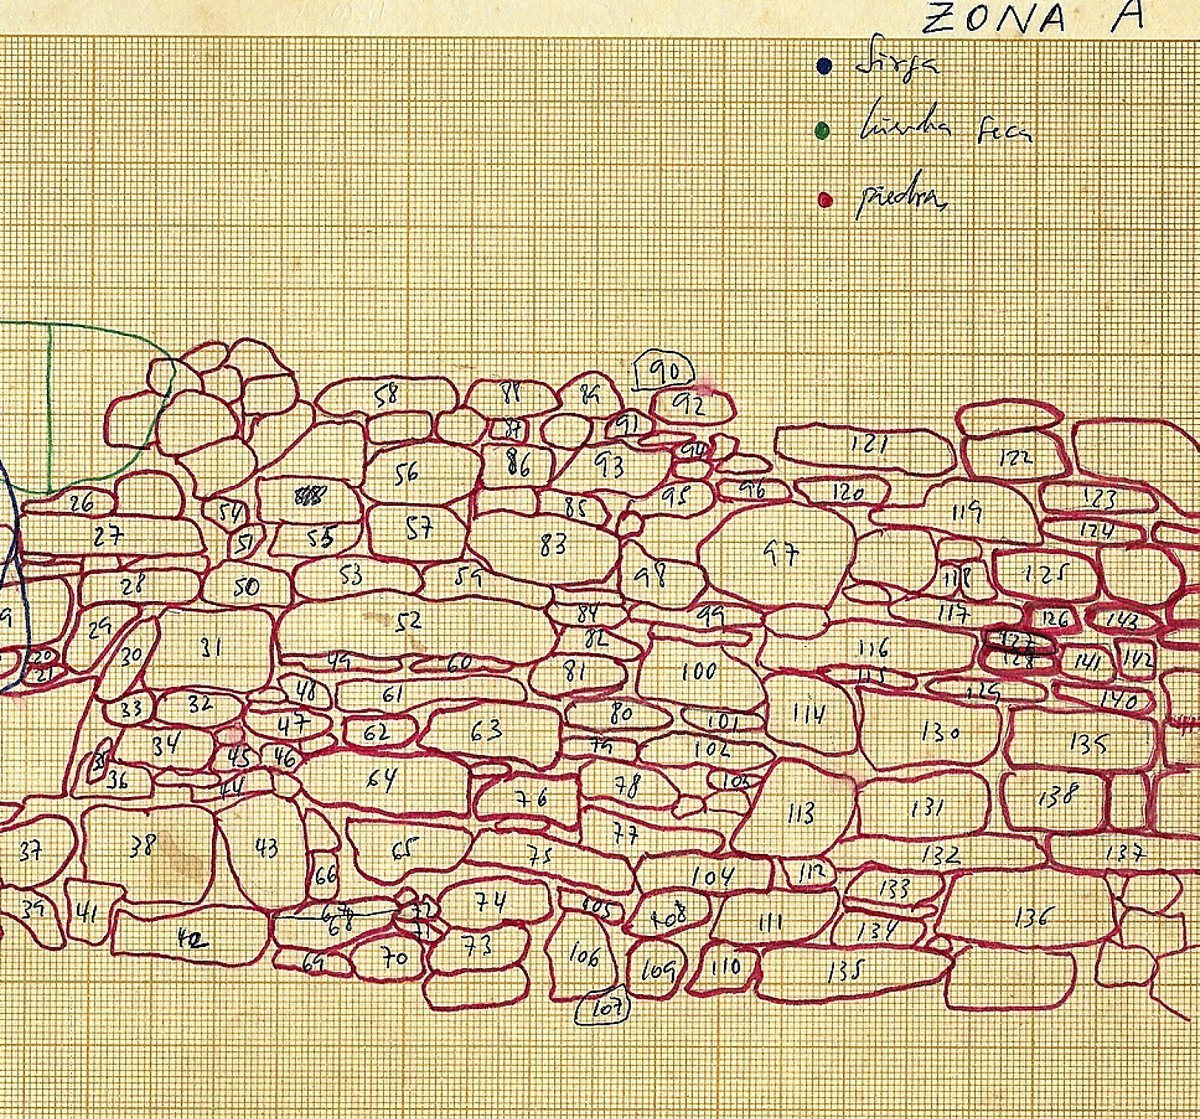 ZONA A
piedras
90
58 88 89
92
87 91
121
122
56 86 93 94
26 54 85 95 96 120 119 123
27 51 55 57 83 97 124
28 50 53 59 98 118 125
29 52 84 99 117 126 143
30 31 82 116 127
20 49 60 81 100 128 141 142
21 48 61 115 129 140
33 32 47 62 63 80 101 114 130 135
34 45 46 79 102
36 44 64 76 78 103 113 131 138
37 38 43 65 75 77 132 137
66 104 112 133
39 41 68 72 74 105 108 111 134 136
42 71 73 106
69 70 109 110 135
107